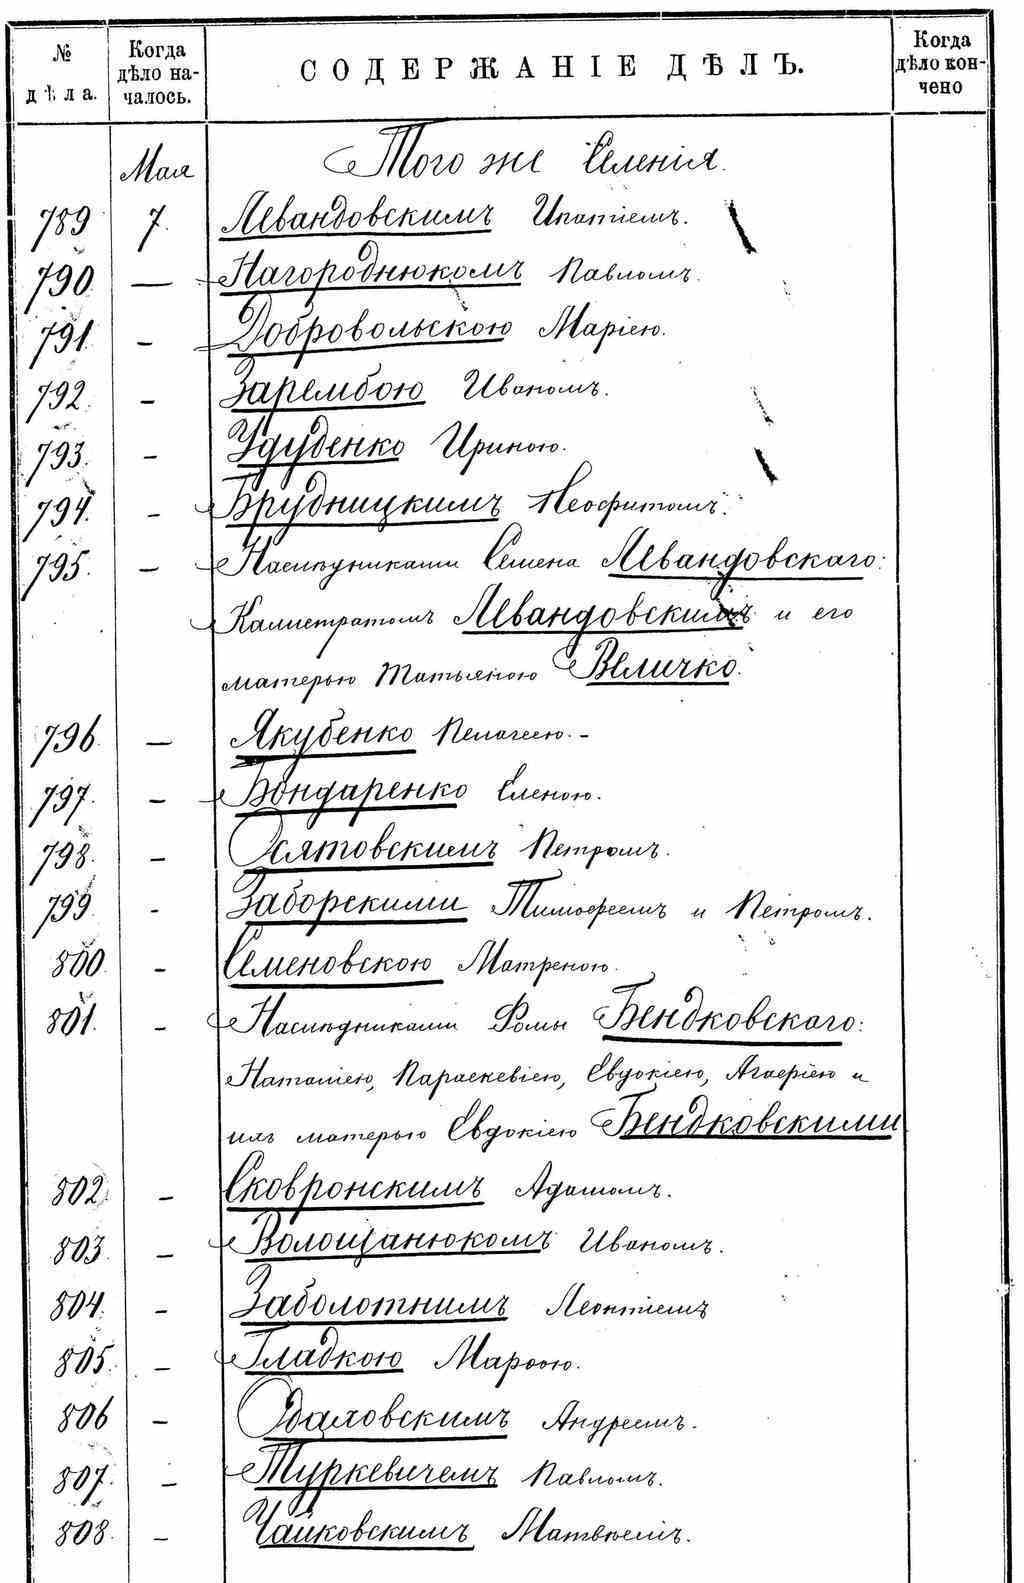 № дѣла.
Когда дѣло на-
чалось.
СОДЕРЖАНІЕ ДѢЛЪ.
Когда дѣло кон-
чено
Мая Того же Селенія.
789 7. Левандовскимъ Ипатіемъ.
790. — Нагороднюкомъ Павломъ.
791. — Добровольскою Маріею.
792. — Зарембою Иваномъ.
793. — Удуденко Ириною.
794. — Брудницкимъ Неофитомъ.
795. — Наслѣдниками Семена Левандовскаго:
Калистратомъ Левандовскимъ и его
матерью Татьяною Величко.
796. — Якубенко Пелагеею. –
797. — Бондаренко Еленою.
798. — Осятовскимъ Петромъ.
799. — Заборскими Тимофеемъ и Петромъ.
800. — Семеновскою Матреною.
801. — Наслѣдниками Фомы Бендковскаго:
Наталіею, Параскевіею, Евдокіею, Агафіею и
ихъ матерью Евдокіею Бендковскими
802. — Сковронскимъ Адамомъ.
803. — Волощанюкомъ Иваномъ.
804. — Заболотнимъ Леонтіемъ
805. — Гладкою Марѳою.
806 — Андреемъ.
807. — Туркевичемъ Павломъ.
808. — Чайковскимъ Матвѣемъ.